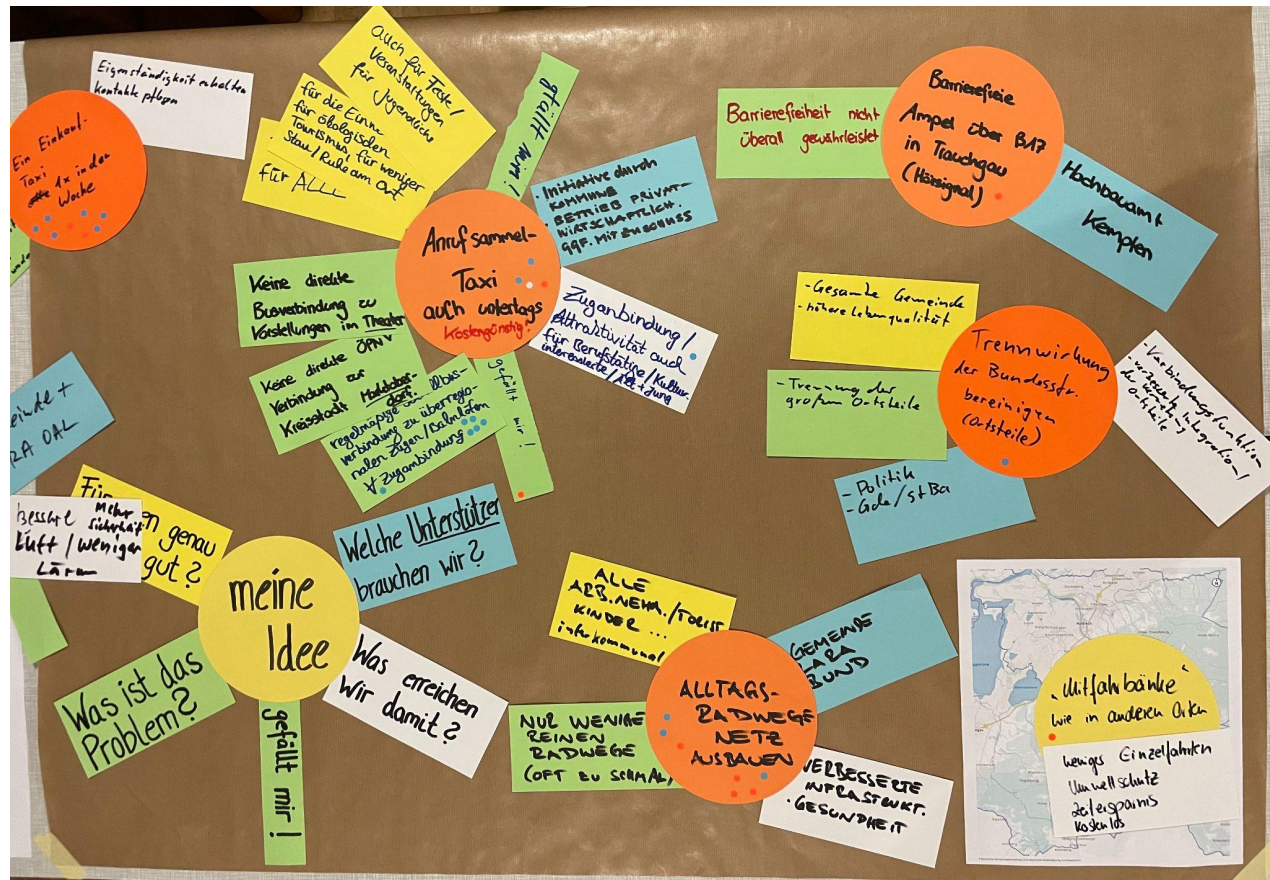 Eigenständigkeit erhalten
Kontakte pflegen
Ein Einkauf-
Taxi
1x in der
Woche
auch für Feste/
Veranstaltungen
für Jugendliche
für die Einw.
für ökologischen
Tourismus, für weniger
Stau/Ruhe am Ort
für ALLE
gefällt mir!
Initiative durch
KOMMUNE
BETRIEB PRIVAT-
WIRTSCHAFTLICH.
GGF. MIT ZUSCHUSS
Anruf sammel-
Taxi
auch untertags
Kostengünstig!
Keine direkte
Busverbindung zu
Vorstellungen im Theater
Keine direkte ÖPNV
Verbindung zur
Kreisstadt Marktober-
dorf.
regelmäßige
verbindung zu überregio-
nalen Zügen/Bahnhöfen
Zuganbindung
gefällt mir!
Zuganbindung/
Attraktivität auch
für Berufstätige/Kultur-
interessierte/Alt + Jung
Barrierefreiheit nicht
überall gewährleistet
Barrierefreie
Ampel über B17
in Trauchgau
(Hörsignal)
Hochbauamt
Kempten
- Gesamte Gemeinde
- höhere Lebensqualität
- Trennung der
großen Ortsteile
Trennwirkung
der Bundesstr.
bereinigen
(Ortsteile)
- Verbindungsfunktion
- verbesserte Integration
der
Ortsteile
- Politik
- Gde/StBa
einde +
RA OAL
bessere Mehr
Sicherheit
Luft/weniger
Lärm
Für
en genau
gut?
meine
Idee
Welche Unterstützer
brauchen wir?
Was ist das
Problem?
Was erreichen
wir damit?
gefällt mir!
ALLE
ARB.NEHM./TOURIST
KINDER ...
interkommunal
GEMEINDE
LARA
BUND
ALLTAGS-
RADWEGE
NETZ
AUSBAUEN
NUR WENIGE
REINEN
RADWEGE
(OFT ZU SCHMAL)
VERBESSERTE
INFRASTRUKT.
. GESUNDHEIT
„Mitfahrbänke“
wie in anderen Orten
weniger Einzelfahrten
Umweltschutz
Zeitersparnis
kostenlos